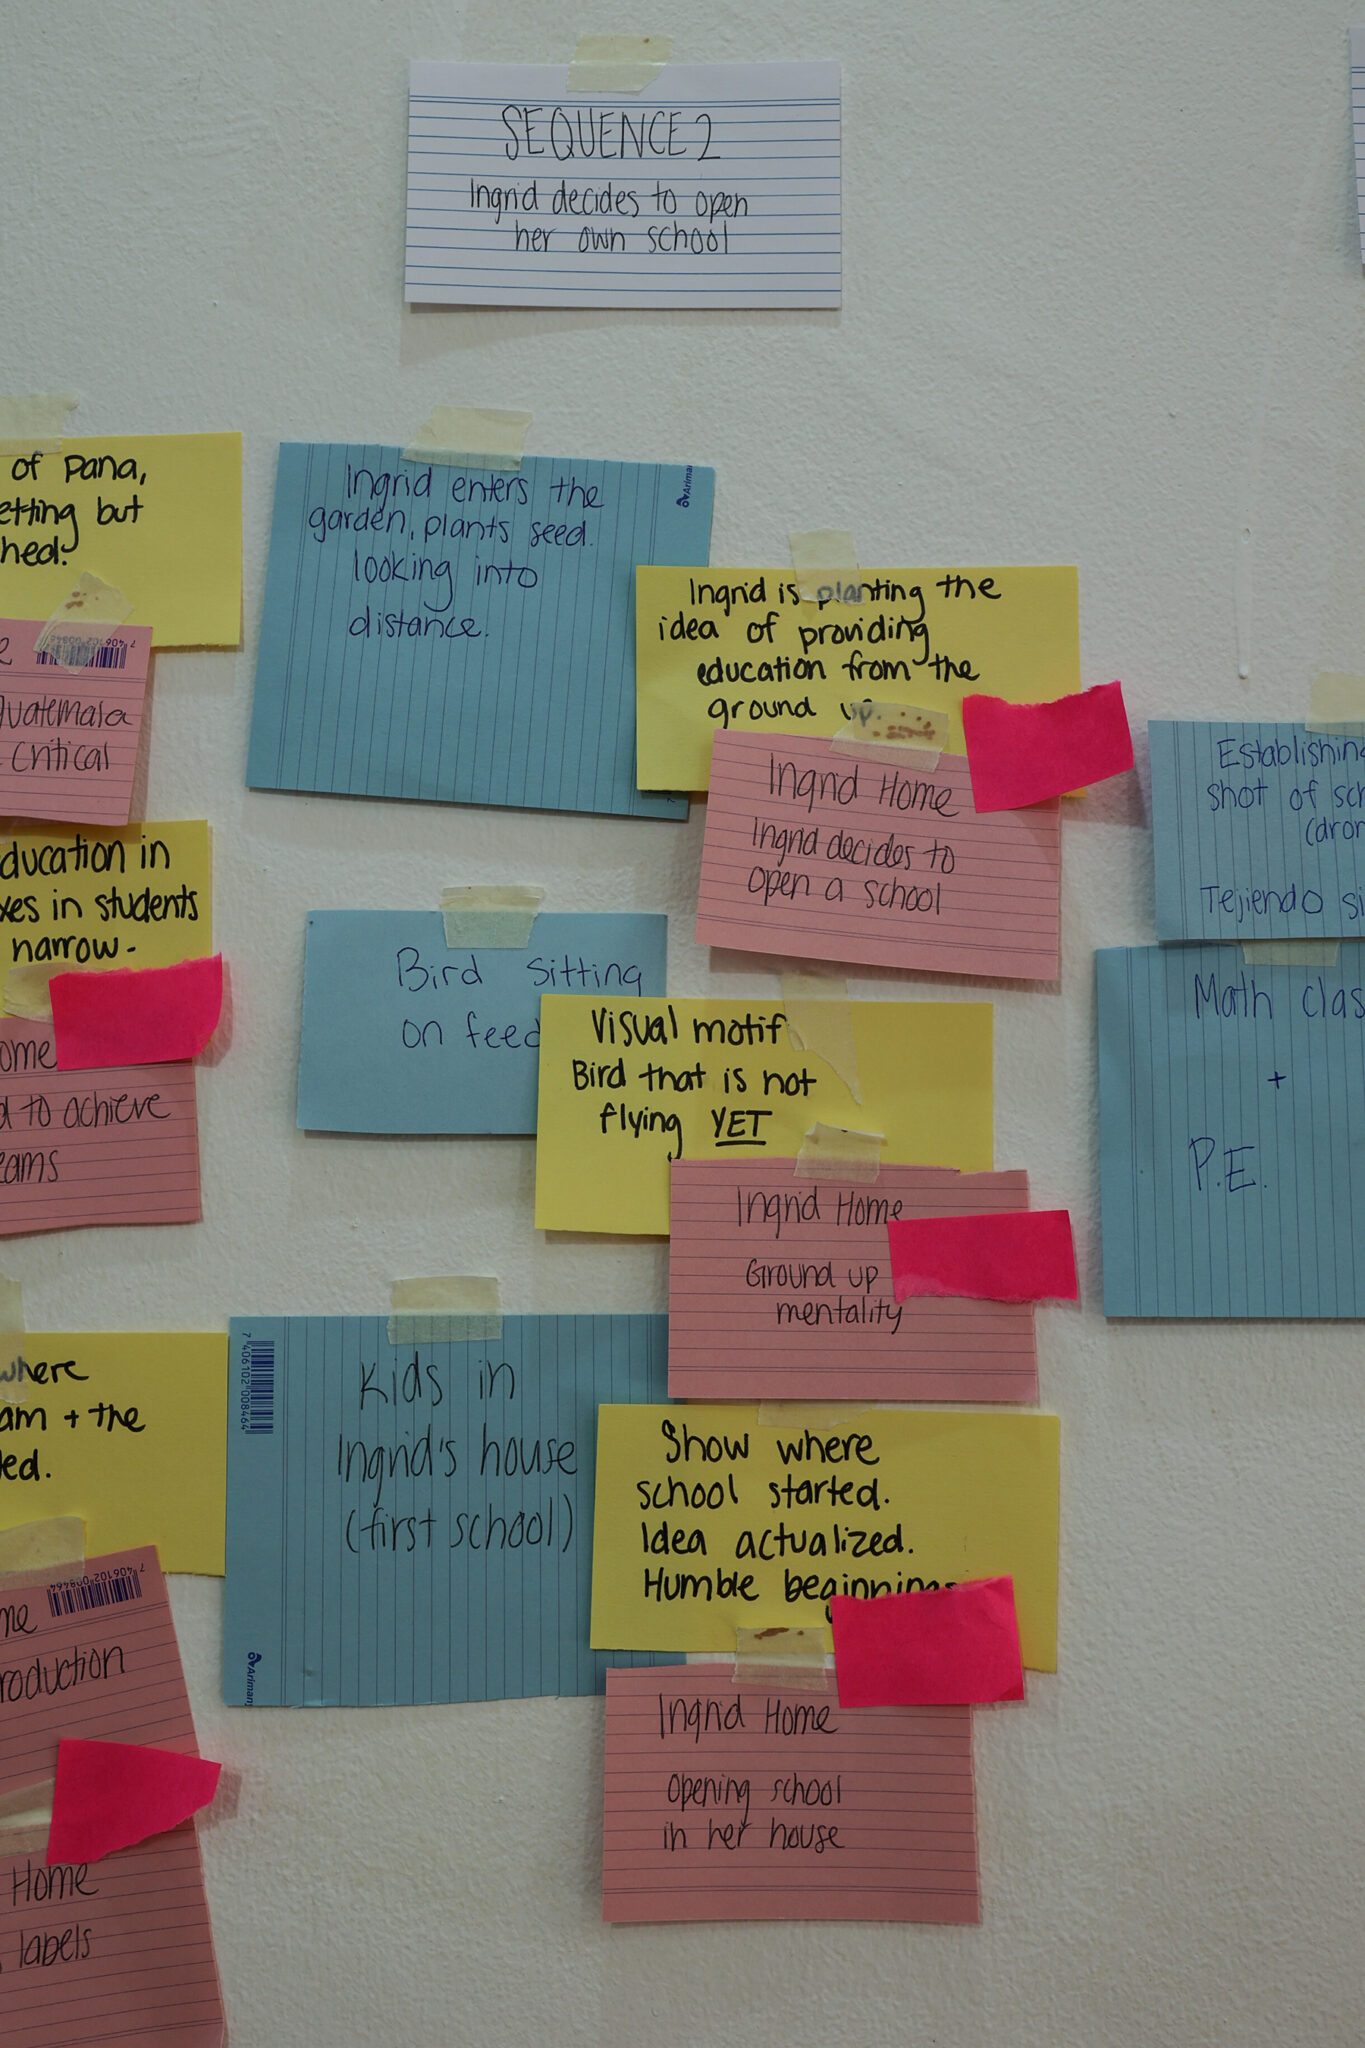 SEQUENCE 2
Ingrid decides to open
her own school
of Pana,
but
Guatemala
critical
in
in students
narrow-
to achieve
where
+ the
Home
labels
Ingrid enters the
garden, plants seed.
looking into
distance.
Ingrid is planting the
idea of providing
education from the
ground up.
Ingrid Home
Ingrid decides to
open a school
Bird sitting
on
Visual motif
Bird that is not
flying YET
Ingrid Home
Ground up
mentality
Kids in
Ingrid's house
(first school)
7 406102 008464
Show where
school started.
Idea actualized.
Humble beginnings
Ingrid Home
opening school
in her house
7 406102 008464
shot of
Tejiendo
Math
+
P.E.